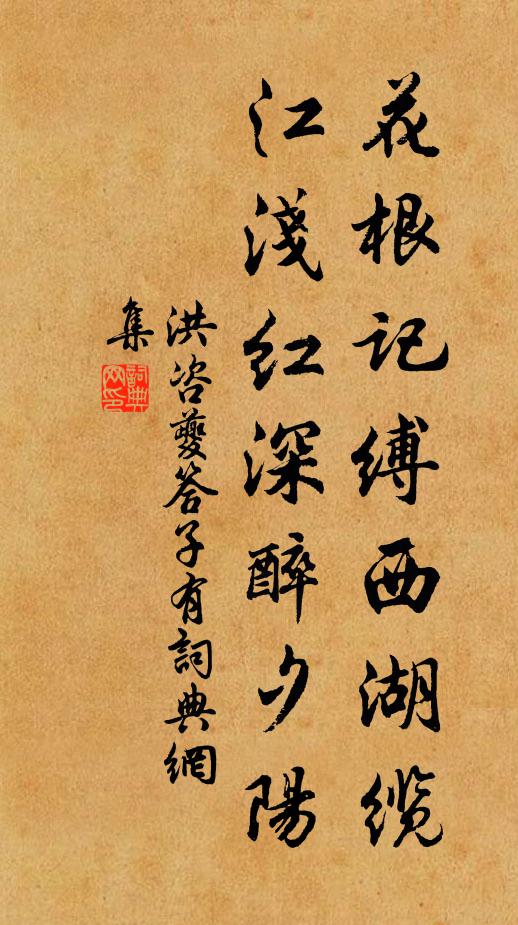 花根记缚西湖缆
江淺红深醉夕陽
洪咨夔答子有詞典網
集
詞典网印